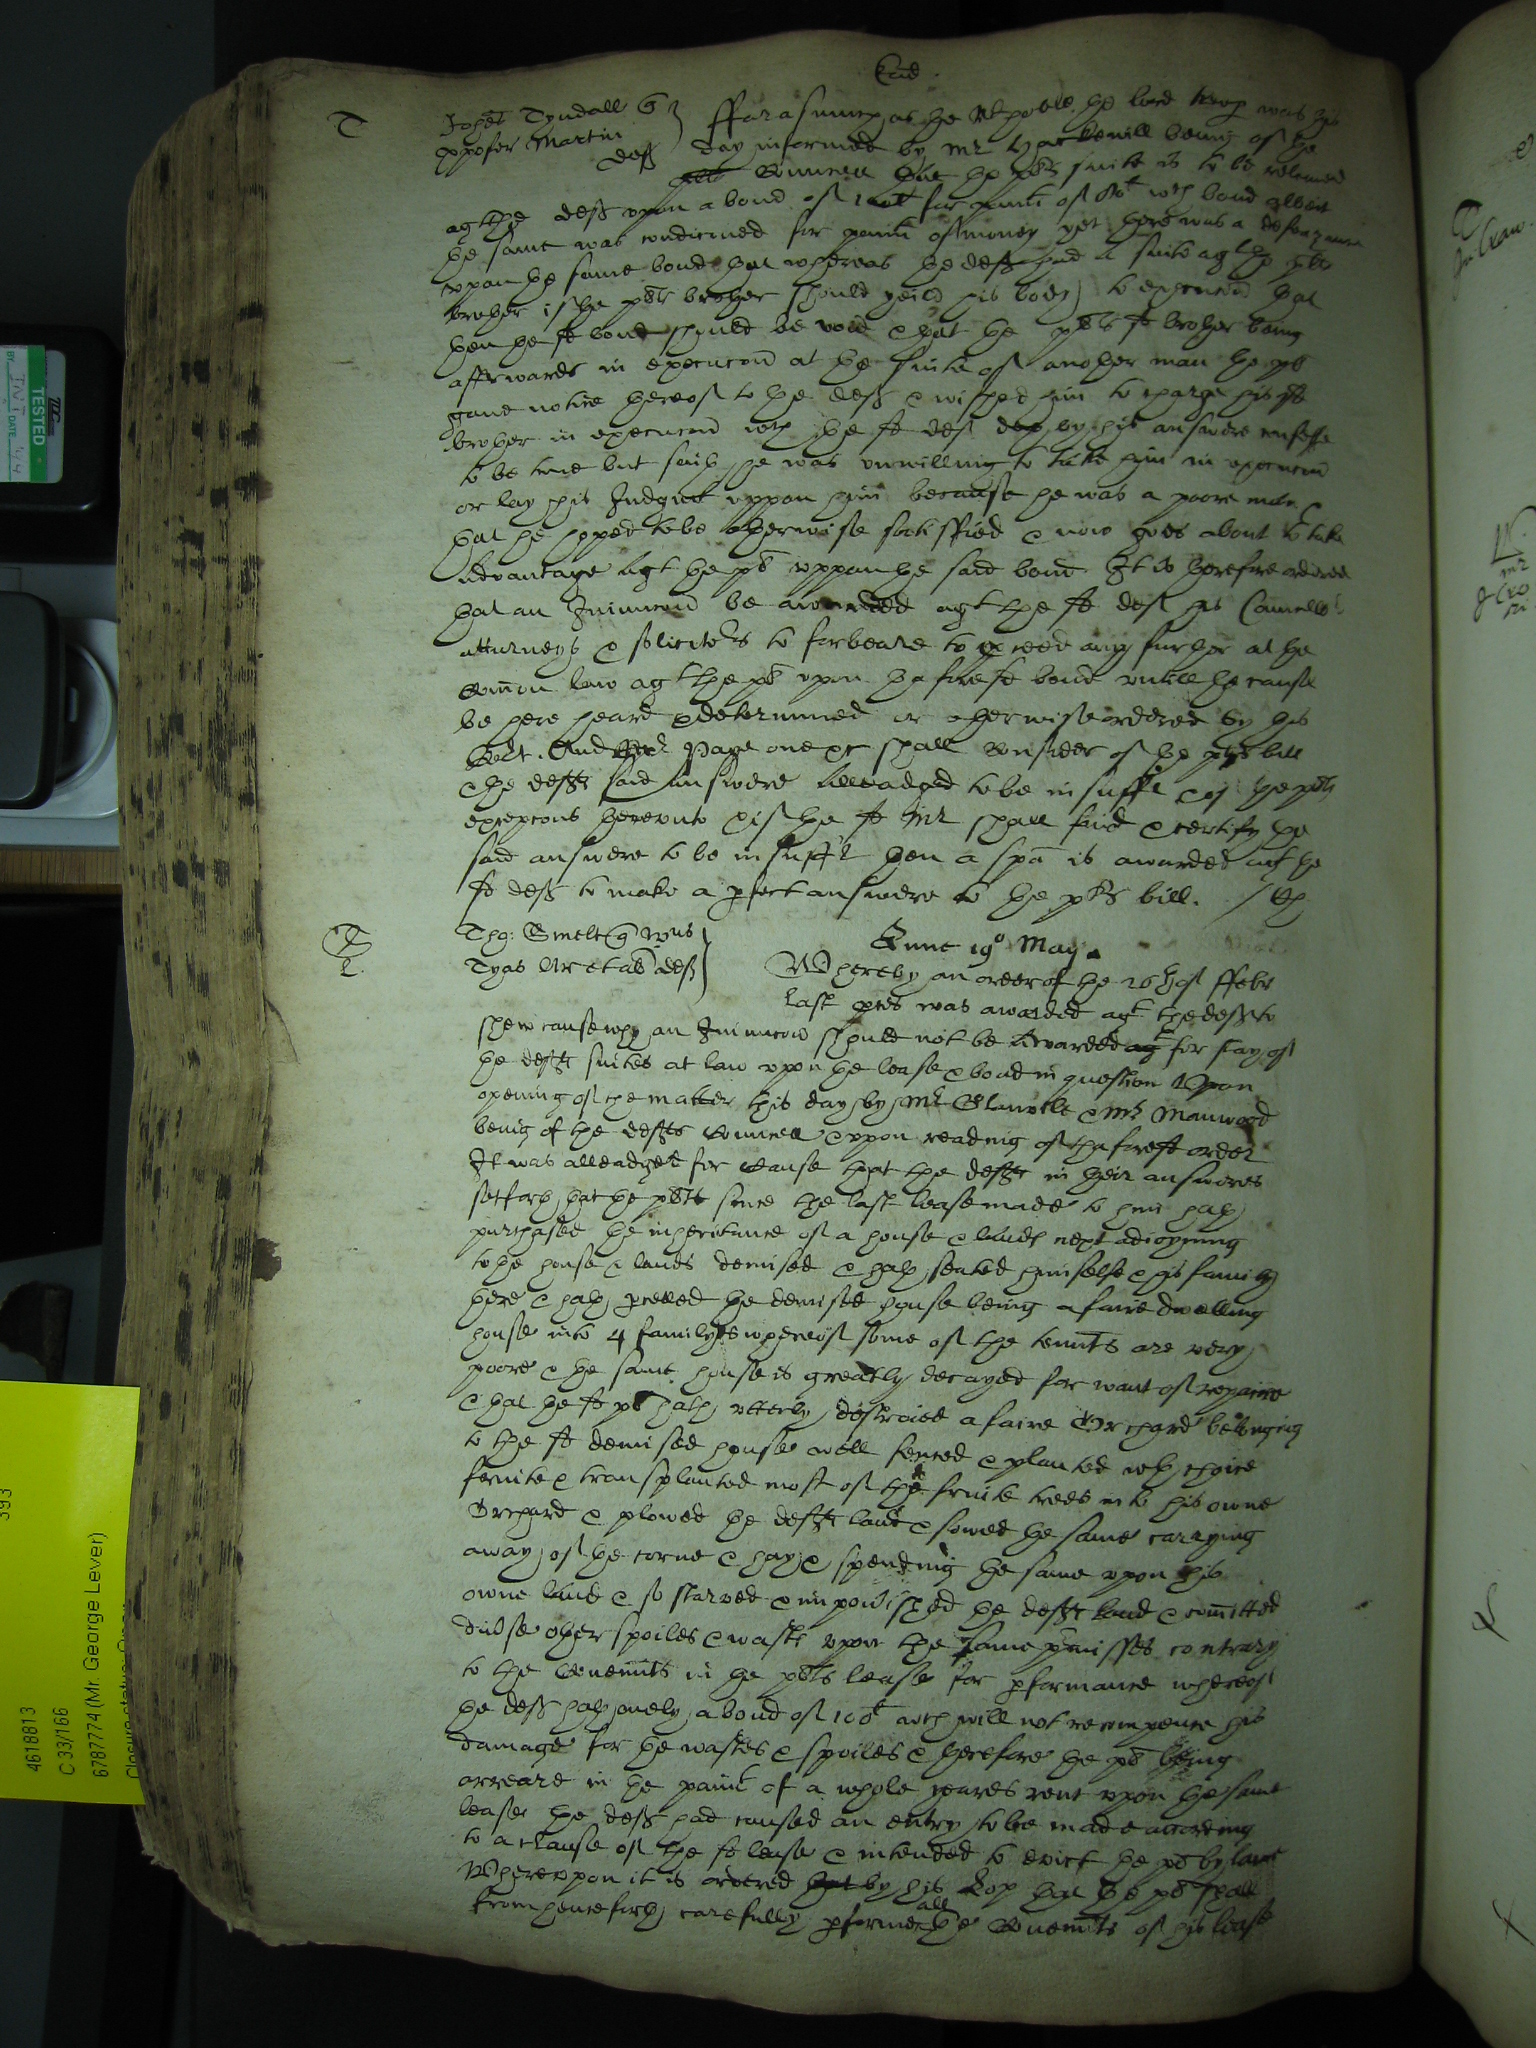 T
Johes Tyndall q
xpofer Martin
deft
fforasmuch as the Rt hoble the lord keep was this
day informed by Mr being of the
plt Councell that the plts suite is to be releived
agt the deft upon a bond of 100l for paimt of 80l wch bond albeit
the same was condicioned for paimt of money yet there was a defeazance
upon the same bond that whereas the deft had a suite agt the plts
brother if the plts brother should yeild his body to execucon that
then the sd bond should be void & that the plts sd brother being
afterwards in execucon at the suite of another man the plt
gave notice thereof to the deft & wished him to charge his sd
brother in execucon wch the sd deft doth by his answere confesse
to be true but saith he was unwilling to take him in execucon
or lay his Judgmt uppon him because he was a poore man &
that he hoped to be otherwise satisfied & now goes about to take
advantage agt the plt uppon the said bond It is therefore ordered
that an Iniunccon be awarded agt the sd deft his Councello
atturneys & solicitors to forbeare to proceed any further at the
Comon law agt the plt upon the foresd bond untill the cause
be here heard & determined or otherwise ordered by this
Cort. And Mr Page one &c shall consider of the plts bill
& the defts said answere alleadged to be insuffi & of the plts
excepcons thereunto & if the sd Mr shall find & certify the
said answere to be insufft then a spa is awarded agt the
sd deft to make a pfect answere to the plts bill. /
Tho: Smelt q
Tyas Ar et al deft
Lune 19o May
Whereby an order of the 26th of ffebr
last pces was awarded agt the defts to
shew cause why an Iniunccon should not be awarded agt for stay of
the defts suites at law upon the lease & bond in question Upon
opening of the matter this day by Mr Glanvile & Mr Manwood
being of the defts Councell & uppon reading of the foresd order
It was alleadged for cause that the defts in their answeres
setforth that the plt since the last lease made to him hath
purchased the inheritance of a house & lands next adioyning
to the house & lands demised & hath seated himselfe & his family
there & hath pcelled the demised house being a faire dwelling
house into 4 familyes whereof some of the tennts are very
poore & the same house is greatly decayed for want of repaire
& that the sd plt hath utterly destroied a faire Orchard belonging
to the sd demised house well fenced & planted wth choice
fruite & transplanted most of the fruite trees into his owne
Orchard & plowed the defts land & sowed the same carrying
away of the corne & hay & spending the same upon his
owne land & so starved & impovished the defts land & comitted
divse other spoiles & wasts upon the same pmisses contrary
to the Covennts in the plts lease for pformance whereof
the deft hath onely a bond of 100l wch will not recompence his
damage for the wastes & spoiles & therefore the plt being
arreare in the paimt of a whole yeares rent upon the same
lease the deft had caused an entry to be made according
to a clause of the sd lease & intended to evict the plt by lawe
Whereupon it is ordered that by his Lop that the plt shall
from henceforth carefully pforme all the Covennts of his lease
TESTED
DATE
393
4618813
C 33/166
6787774 (Mr. George Lever)